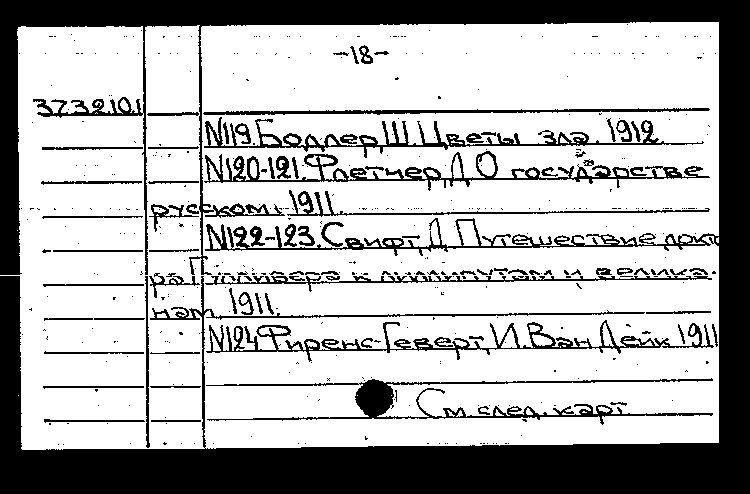 -18-
3732.10.1
N119. Бодлер, Ш. Цветы зла. 1912.
N120-121. Флетчер, Д. О государстве
русском. 1911.
N122-123. Свифт, Д. Путешествие докто
ра Гулливера к лиллипутам и велика-
нам. 1911.
N124 Фиренс-Геверт, И. Ван Дейк 1911
См. след. карт.